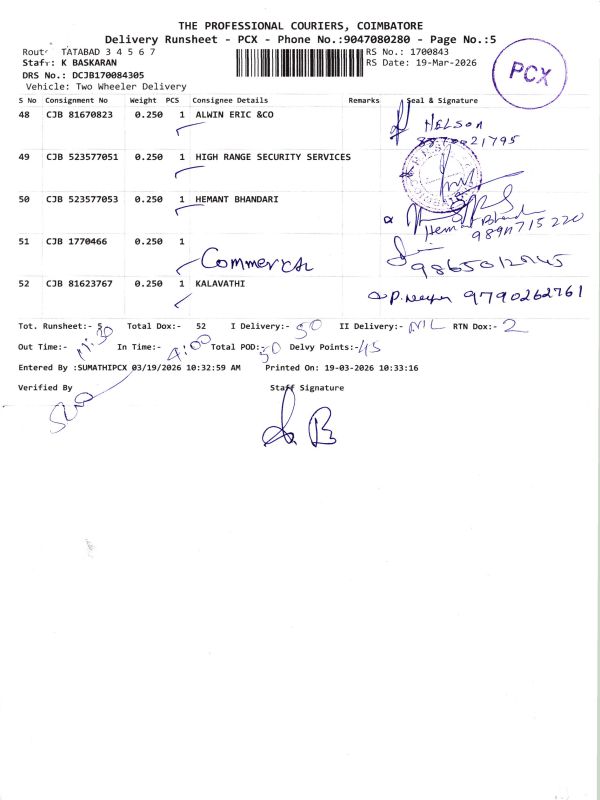 THE PROFESSIONAL COURIERS, COIMBATORE
Delivery Runsheet - PCX - Phone No.:9047080280 - Page No.:5
Route TATABAD 3 4 5 6 7
RS No.: 1700843
Staff: K BASKARAN
RS Date: 19-Mar-2026
DRS No.: DCJB170084305
Vehicle: Two Wheeler Delivery
PCX
S No Consignment No Weight PCS Consignee Details Remarks Seal & Signature
48 CJB 81670823 0.250 1 ALWIN ERIC &CO
NELSON
49 CJB 523577051 0.250 1 HIGH RANGE SECURITY SERVICES
50 CJB 523577053 0.250 1 HEMANT BHANDARI
51 CJB 1770466 0.250 1
52 CJB 81623767 0.250 1 KALAVATHI
9790262761
Tot. Runsheet:- 5 Total Dox:- 52 I Delivery:- 50 II Delivery:- NIL RTN Dox:- 2
Out Time:- 11:30 In Time:- 4:00 Total POD:- 50 Delvy Points:- 45
Entered By :SUMATHIPCX 03/19/2026 10:32:59 AM Printed On: 19-03-2026 10:33:16
Verified By Staff Signature